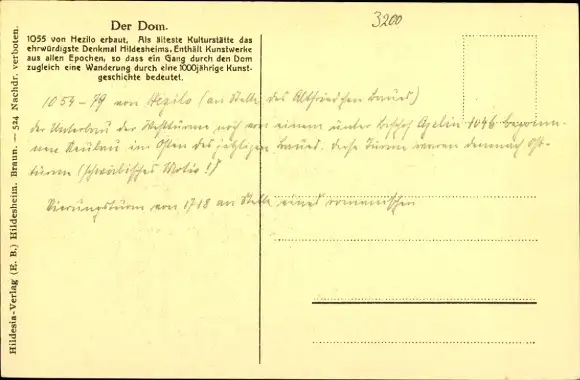 3200
Der Dom.
1055 von Hezilo erbaut. Als älteste Kulturstätte das
ehrwürdigste Denkmal Hildesheims. Enthält Kunstwerke
aus allen Epochen, so dass ein Gang durch den Dom
zugleich eine Wanderung durch eine 1000jährige Kunst-
geschichte bedeutet.
1054-79 von Hezilo (an Stelle des Altfriedschen Baues)
der Unterbau der Westtürme noch von einem unter Bischof Azelin 1046 begonne-
nen Neubau im Osten des jetzigen Baues. Diese Türme waren demnach Ost-
türme (schwäbisches Motiv!)
Vierungsturm von 1718 an Stelle eines romanischen
Hildesia-Verlag (E. B.) Hildesheim. Braun. — 524 Nachdr. verboten.